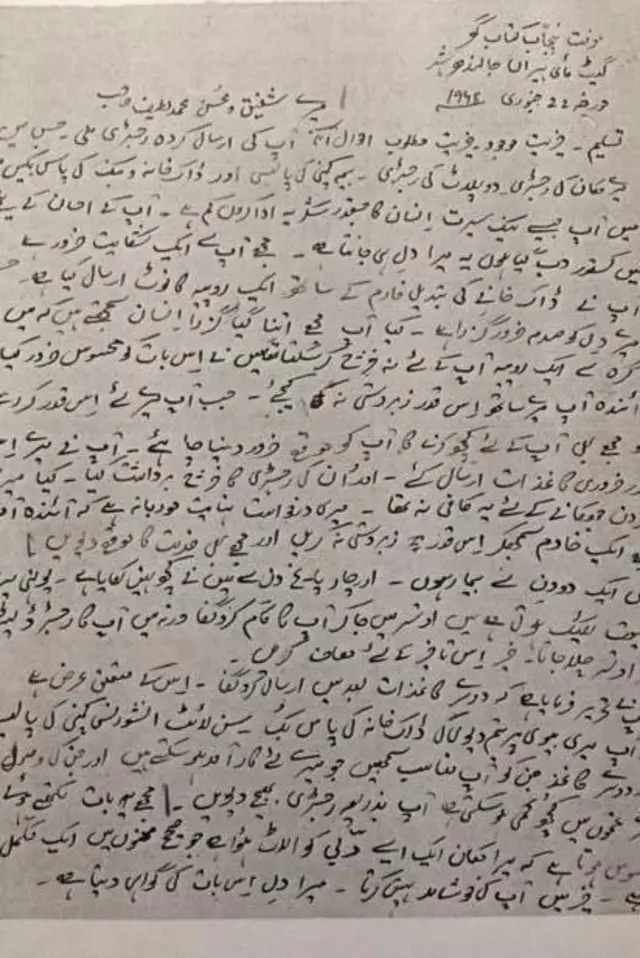 دفتر پنجاب کتاب گھر
گیٹ مائی ہیراں جالندھر شہر
مورخہ 22 جنوری
میرے شفیق و محسن محمد لطیف صاحب
تسلیم ۔ خیریت موجود ۔ خیریت مطلوب احوال آنکہ آپ کی ارسال کردہ رجسٹری ملی ۔ جس میں
میرے مکان کی رجسٹری ۔ دو پلاٹ کی رجسٹری ۔ بیمہ کمپنی کی پالیسی اور ڈاک خانہ و بنک کی پاس بکیں
میں آپ جیسے نیک سیرت انسان کا جسقدر شکریہ ادا کروں کم ہے ۔ آپ کے احسان کے
میں کسقدر دب گیا ہوں یہ میرا دل ہی جانتا ہے ۔ مجھے آپ سے ایک شکایت ضرور ہے
آپ نے ڈاک خانے کی تبدیل فارم کے ساتھ ایک روپیہ کا نوٹ ارسال کیا ہے ۔
میرے دل کو صدمہ ضرور گزرا ہے ۔ کیا آپ مجھے اتنا گیا گزرا انسان سمجھتے ہیں کہ میں
گرہ سے ایک روپیہ آپ کے لئے نہ خرچ کر سکتا تھا میں نے اس بات کو محسوس ضرور کیا
آئندہ آپ میرے ساتھ اس قدر زبردستی نہ کیجئے ۔ جب آپ میرے لئے اس قدر کر رہے
تو مجھے بھی آپ کے لئے کچھ کرنے کا آپ کو موقع ضرور دینا چاہئے ۔ آپ نے میرے
ضروری کاغذات ارسال کئے ۔ اور ان کی رجسٹری کا خرچ برداشت کیا ۔ کیا میری
گردن جھکانے کے لئے یہ کافی نہ تھا ۔ میری درخواست نہایت مودبانہ ہے کہ آئندہ آپ
ایک خادم سمجھ کر اس قدر زبردستی نہ کریں اور مجھے بھی خدمت کا موقع دیویں
ایک دو دن سے بیمار ہوں ۔ اور چار پانچ دن سے میں نے کچھ نہیں کھایا ہے ۔
طبیعت ٹھیک ہوتی ہے میں امرتسر جا کر آپ کا تمام کام کرونگا ورنہ میں آپ کا رجسٹرڈ
امرتسر چلا جاتا ۔ خیر اس تاخیر کے لئے معاف کریں ۔
آپ نے تحریر فرمایا ہے کہ دوسرے کاغذات بعد میں ارسال کرونگا ۔ اس کے متعلق عرض ہے
آپ میری بیوی پریتم دیوی کی ڈاک خانہ کی پاس بک سن لائٹ انشورنس کمپنی کی پالیسی
دوسرے کاغذ جن کو آپ مناسب سمجھیں جو میرے لئے کارآمد ہو سکتے ہیں اور جن کی وصولی
غموں میں کچھ کمی ہو سکتی ہے آپ بذریعہ رجسٹری بھیج دیویں ۔ مجھے یہ بات لکھتے ہوئے
محسوس ہوتا ہے کہ میرا مکان ایک ایسے کو الاٹ ہوا ہے جو صحیح معنوں میں ایک مکمل
ہے ۔ خیر میں آپ کی خوشامد نہیں کرتا ۔ میرا دل اس بات کی گواہی دیتا ہے ۔